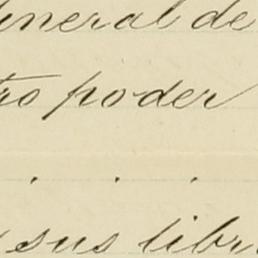 general de
tro poder
. . .
sus libr